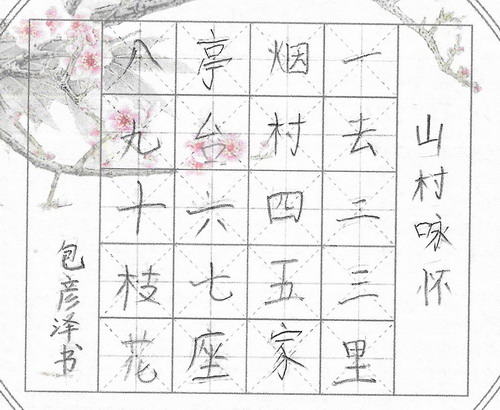 山村咏怀
一去二三里
烟村四五家
亭台六七座
八九十枝花
包彦泽书